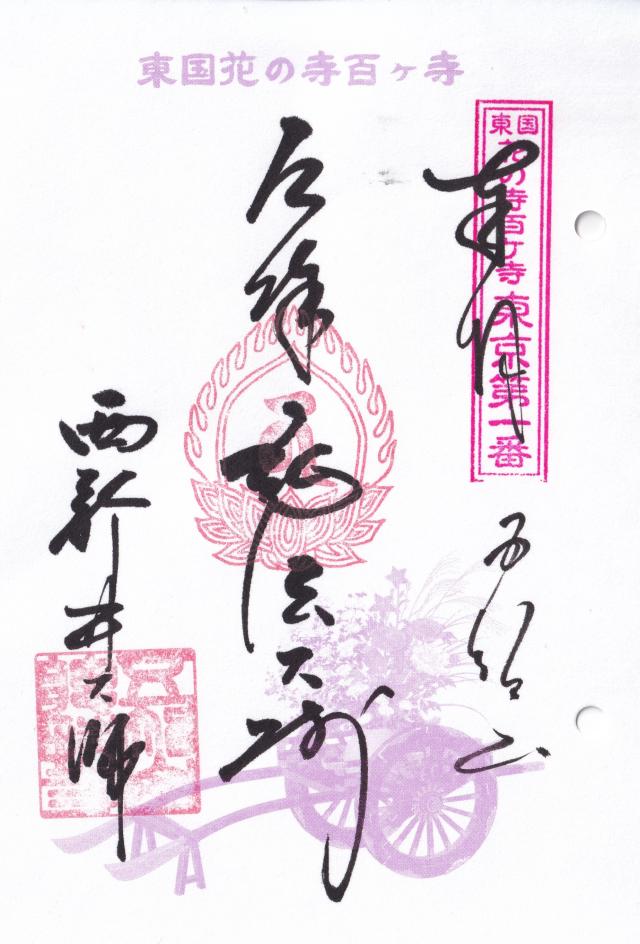 東国花の寺百ヶ寺
東国花の寺百ヶ寺 東京第一番
奉拝
五智山
厄除 弘法大師
西新井大師